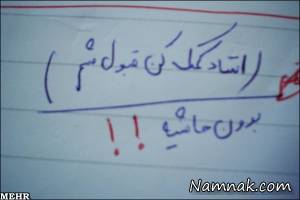 (استاد کمک کن قبول شم)
بدون حاشیه !!
Namnak.com
MEHR